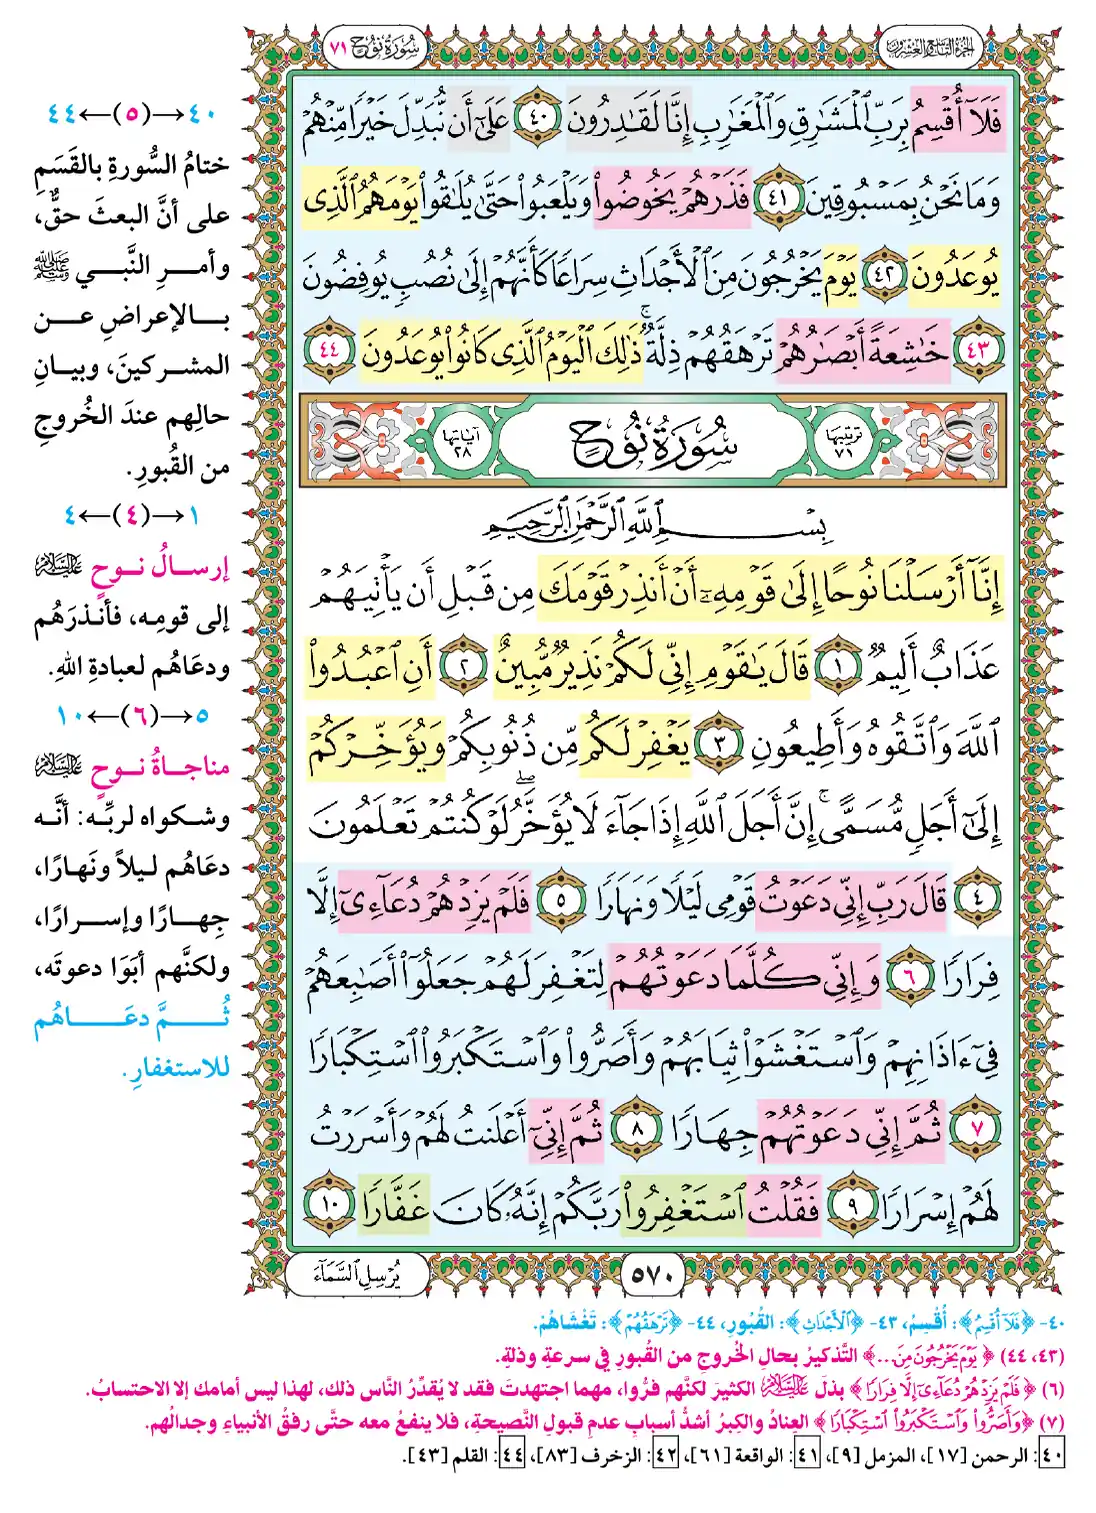 الجزء التاسع والعشرون
سُورَةُ نُوحٍ ٧١
فَلَآ أُقۡسِمُ بِرَبِّ ٱلۡمَشَٰرِقِ وَٱلۡمَغَٰرِبِ إِنَّا لَقَٰدِرُونَ ٤٠ عَلَىٰٓ أَن نُّبَدِّلَ خَيۡرٗا مِّنۡهُمۡ
وَمَا نَحۡنُ بِمَسۡبُوقِينَ ٤١ فَذَرۡهُمۡ يَخُوضُواْ وَيَلۡعَبُواْ حَتَّىٰ يُلَٰقُواْ يَوۡمَهُمُ ٱلَّذِي
يُوعَدُونَ ٤٢ يَوۡمَ يَخۡرُجُونَ مِنَ ٱلۡأَجۡدَاثِ سِرَاعٗا كَأَنَّهُمۡ إِلَىٰ نُصُبٖ يُوفِضُونَ
٤٣ خَٰشِعَةً أَبۡصَٰرُهُمۡ تَرۡهَقُهُمۡ ذِلَّةٞۚ ذَٰلِكَ ٱلۡيَوۡمُ ٱلَّذِي كَانُواْ يُوعَدُونَ ٤٤
ترتيبها ٧١ سُورَةُ نُوحٍ آياتها ٢٨
بِسۡمِ ٱللَّهِ ٱلرَّحۡمَٰنِ ٱلرَّحِيمِ
إِنَّآ أَرۡسَلۡنَا نُوحًا إِلَىٰ قَوۡمِهِۦٓ أَنۡ أَنذِرۡ قَوۡمَكَ مِن قَبۡلِ أَن يَأۡتِيَهُمۡ
عَذَابٌ أَلِيمٞ ١ قَالَ يَٰقَوۡمِ إِنِّي لَكُمۡ نَذِيرٞ مُّبِينٌ ٢ أَنِ ٱعۡبُدُواْ
ٱللَّهَ وَٱتَّقُوهُ وَأَطِيعُونِ ٣ يَغۡفِرۡ لَكُم مِّن ذُنُوبِكُمۡ وَيُؤَخِّرۡكُمۡ
إِلَىٰٓ أَجَلٖ مُّسَمًّىۚ إِنَّ أَجَلَ ٱللَّهِ إِذَا جَآءَ لَا يُؤَخَّرُۖ لَوۡ كُنتُمۡ تَعۡلَمُونَ
٤ قَالَ رَبِّ إِنِّي دَعَوۡتُ قَوۡمِي لَيۡلٗا وَنَهَارٗا ٥ فَلَمۡ يَزِدۡهُمۡ دُعَآءِيٓ إِلَّا
فِرَارٗا ٦ وَإِنِّي كُلَّمَا دَعَوۡتُهُمۡ لِتَغۡفِرَ لَهُمۡ جَعَلُوٓاْ أَصَٰبِعَهُمۡ
فِيٓ ءَاذَانِهِمۡ وَٱسۡتَغۡشَوۡاْ ثِيَابَهُمۡ وَأَصَرُّواْ وَٱسۡتَكۡبَرُواْ ٱسۡتِكۡبَارٗا
٧ ثُمَّ إِنِّي دَعَوۡتُهُمۡ جِهَارٗا ٨ ثُمَّ إِنِّيٓ أَعۡلَنتُ لَهُمۡ وَأَسۡرَرۡتُ
لَهُمۡ إِسۡرَارٗا ٩ فَقُلۡتُ ٱسۡتَغۡفِرُواْ رَبَّكُمۡ إِنَّهُۥ كَانَ غَفَّارٗا ١٠
٥٧٠
يُرۡسِلِ ٱلسَّمَآءَ
٤٠→(٥)←٤٤
ختامُ السُّورةِ بالقَسَمِ
على أنَّ البعثَ حقٌّ،
وأمرِ النَّبي ﷺ
بالإعراضِ عن
المشركينَ، وبيانِ
حالِهم عندَ الخُروجِ
من القُبورِ.
١→(٤)←٤
إرسالُ نوحٍ عليه السلام
إلى قومِه، فأنذرَهُم
ودعَاهُم لعبادةِ اللهِ.
٥→(٦)←١٠
مناجاةُ نوحٍ عليه السلام
وشكواه لربِّه: أنَّه
دعَاهُم ليلاً ونَهارًا،
جِهارًا وإسرارًا،
ولكنَّهم أبَوَا دعوتَه،
ثُمَّ دعَاهُم
للاستغفارِ.
٤٠- ﴿فَلَآ أُقۡسِمُ﴾: أُقْسِمُ، ٤٣- ﴿ٱلۡأَجۡدَاثِ﴾: القُبُورِ، ٤٤- ﴿تَرۡهَقُهُمۡ﴾: تَغْشَاهُمْ.
(٤٣، ٤٤) ﴿يَوۡمَ يَخۡرُجُونَ مِنَ...﴾ التَّذكيرُ بحالِ الخُروجِ من القُبورِ في سرعةٍ وذلةٍ.
(٦) ﴿فَلَمۡ يَزِدۡهُمۡ دُعَآءِيٓ إِلَّا فِرَارٗا﴾ بذلَ عليه السلام الكثيرَ لكنَّهم فرُّوا، مهما اجتهدتَ فقد لا يُقدِّرُ النَّاس ذلك، لهذا ليس أمامك إلا الاحتسابُ.
(٧) ﴿وَأَصَرُّواْ وَٱسۡتَكۡبَرُواْ ٱسۡتِكۡبَارٗا﴾ العِنادُ والكِبرُ أشدُّ أسبابِ عدمِ قبولِ النَّصيحةِ، فلا ينفعُ معه حتَّى رفقُ الأنبياءِ وجدالُهم.
٤٠: الرحمن [١٧]، المزمل [٩]، ٤١: الواقعة [٦١]، ٤٢: الزخرف [٨٣]، ٤٤: القلم [٤٣].